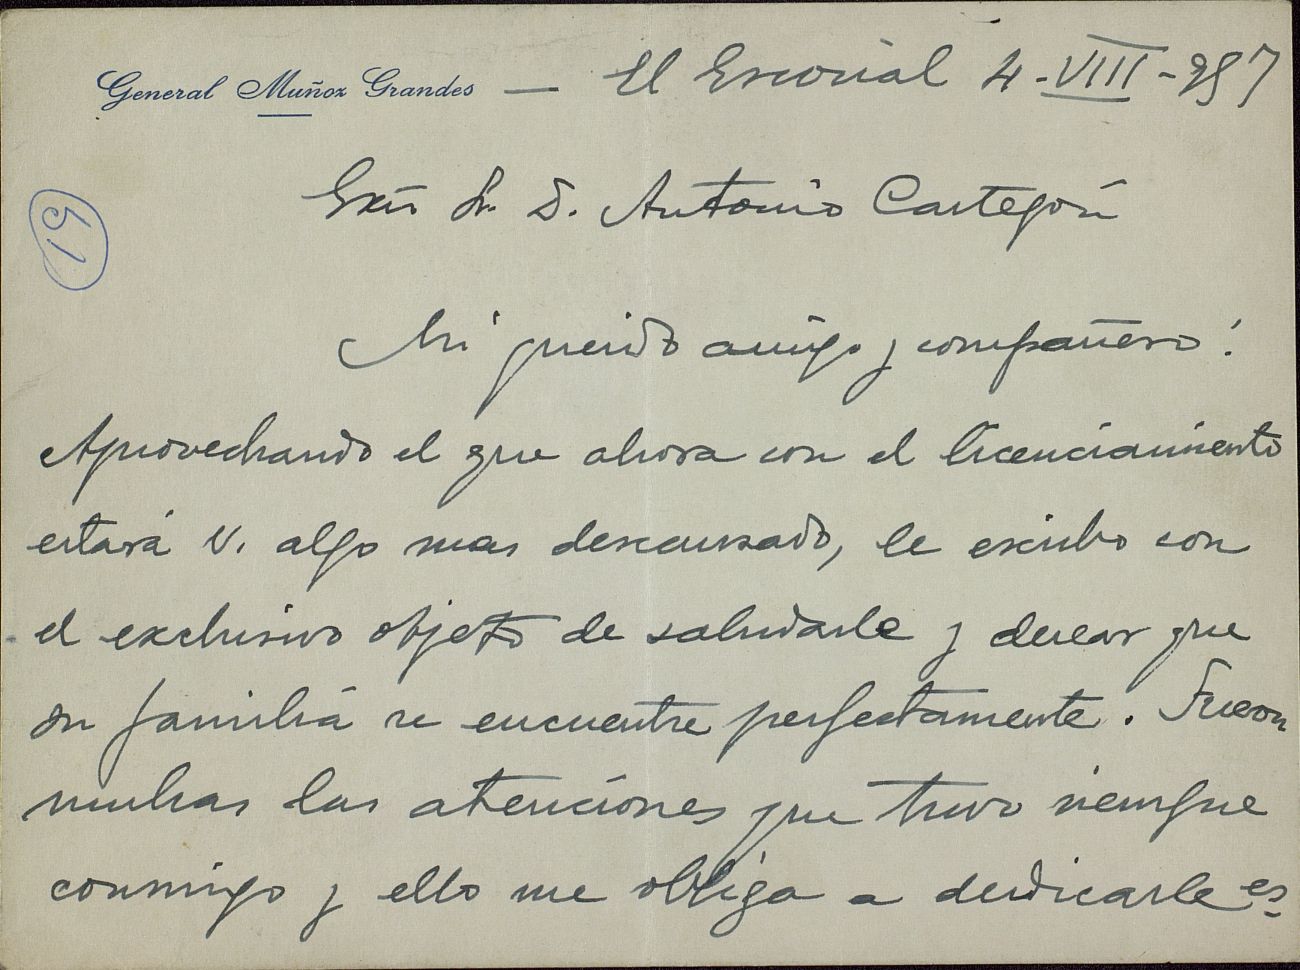 General Muñoz Grandes — El Escorial 4-VIII-957
51
Exmo Sr. D. Antonio Castejón
Mi querido amigo y compañero:
Aprovechando el que ahora con el licenciamiento
estará V. algo mas descansado, le escribo con
el exclusivo objeto de saludarle y desear que
su familia se encuentre perfectamente. Fueron
muchas las atenciones que tuvo siempre
conmigo y ello me obliga a dedicarle es-